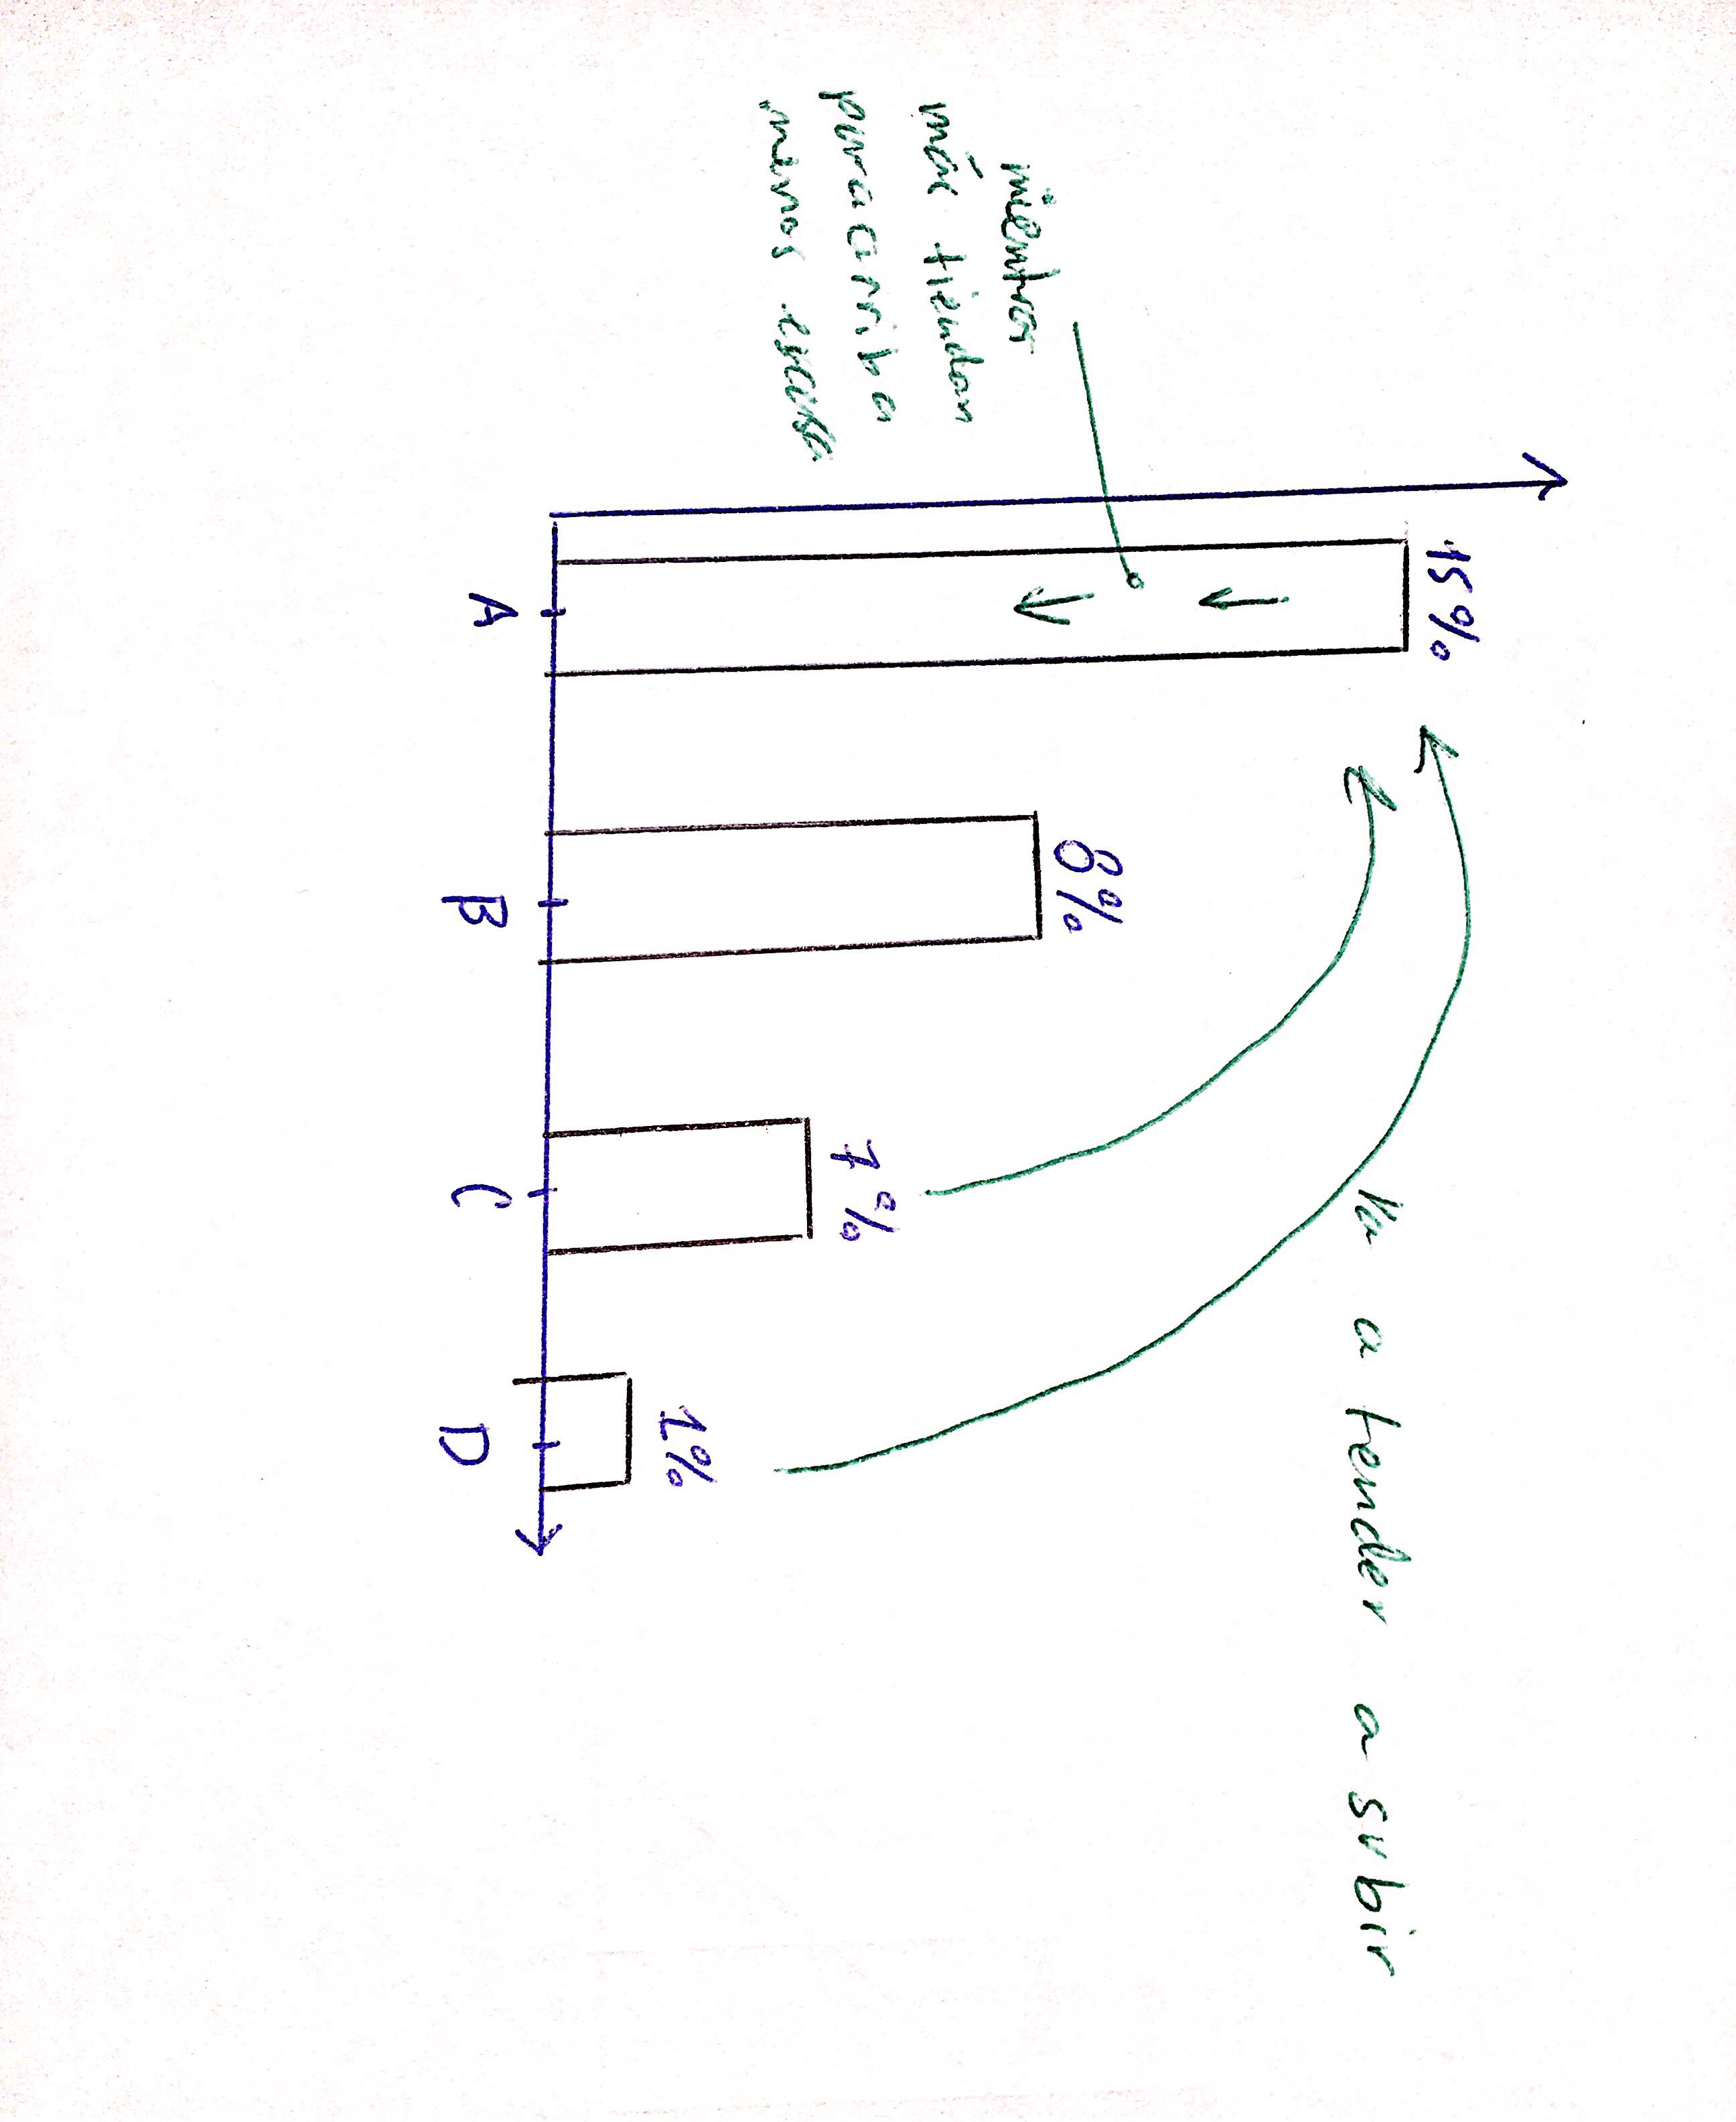 15%
va a tender a subir
8%
mientras
más tiendan
para arriba
menos escasa
7%
1%
A
B
C
D